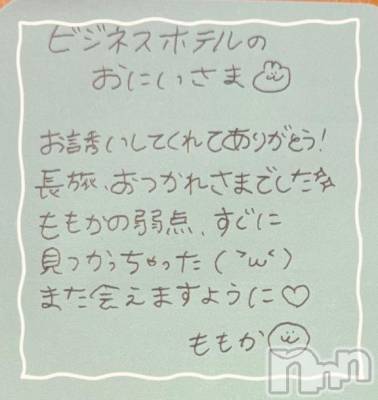 ビジネスホテルの
おにいさま
お誘いしてくれてありがとう!
長旅、おつかれさまでした☆
ももかの弱点、すぐに
見つかっちゃった(>ω<)
また会えますように♡
ももか